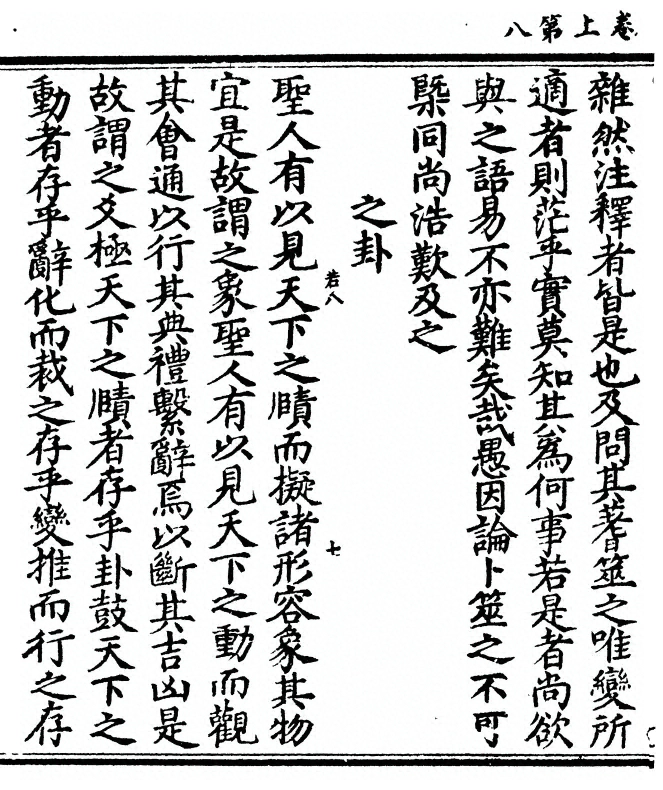 卷上第八
雜然注釋者皆是也及問其蓍筮之唯變所
適者則茫乎實莫知其爲何事若是者尚欲
與之語易不亦難矣哉愚因論卜筮之不可
槩同尚浩歎及之
之卦
若八
聖人有以見天下之賾而擬諸形容象其物
七
宜是故謂之象聖人有以見天下之動而觀
其會通以行其典禮繫辭焉以斷其吉凶是
故謂之爻極天下之賾者存乎卦鼓天下之
動者存乎辭化而裁之存乎變推而行之存